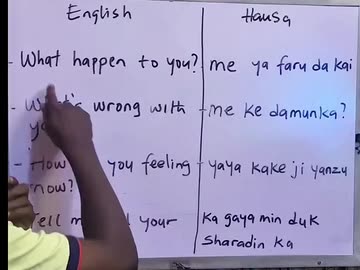 English Hausa
- What happen to you? - me ya faru da kai
- What's wrong with - me ke damunka?
- How you feeling - yaya kake ji yanzu
now?
Tell your Ka gaya min duk
Sharadin ka